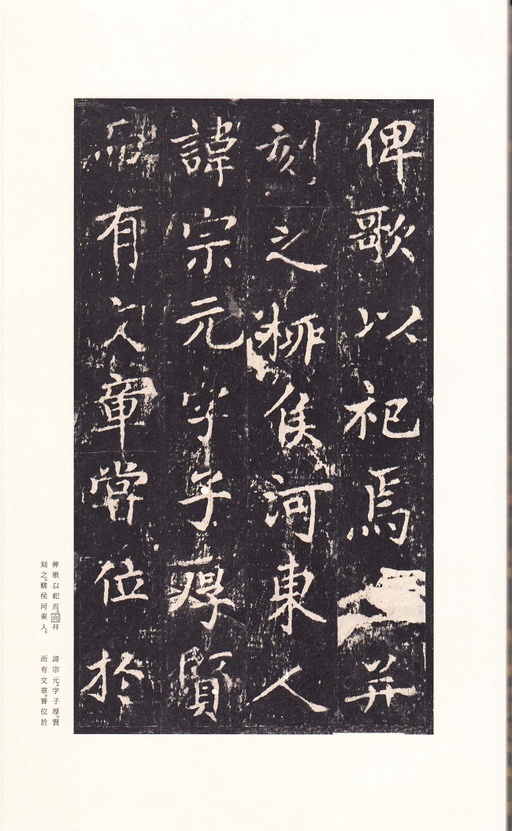 俾歌以祀焉并
刻之柳侯河東人
諱宗元字子厚賢
而有文章嘗位於
俾歌以祀焉。而并
刻之。柳侯河東人。
諱宗元。字子厚。賢
而有文章。嘗位於